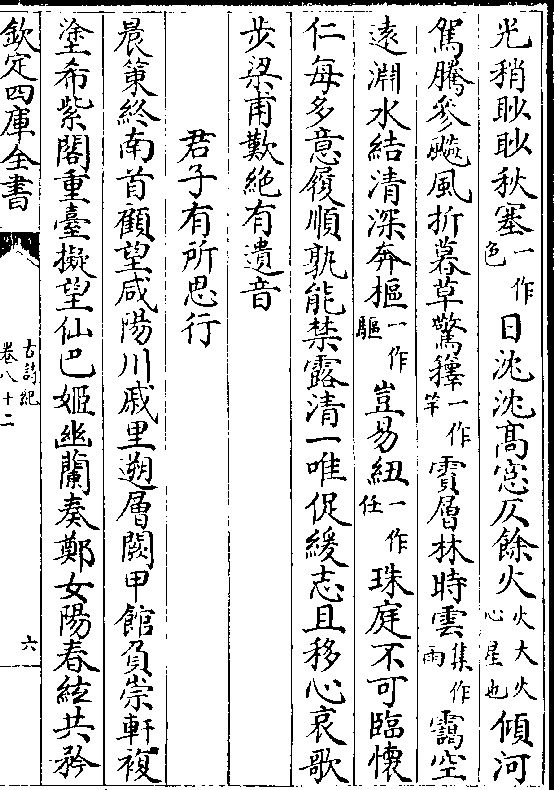 光稍耿耿秋塞一作色日沈沈髙窓仄餘火火大火心星也傾河
駕騰參飈風折暮草驚籜一作竿霣層林時雲集作雨靄空
逺淵水結清深奔樞一作驅豈易紐一作仕珠庭不可臨懷
仁每多意履順孰能禁露清一唯促緩志且移心哀歌
步梁甫歎絶有遺音
君子有所思行
晨策終南首顧望咸陽川戚里遡層闕甲館負崇軒複
塗希紫閣重臺擬望仙巴姬幽蘭奏鄭女陽春絃共矜
欽定四庫全書
古詩紀
卷八十二
六